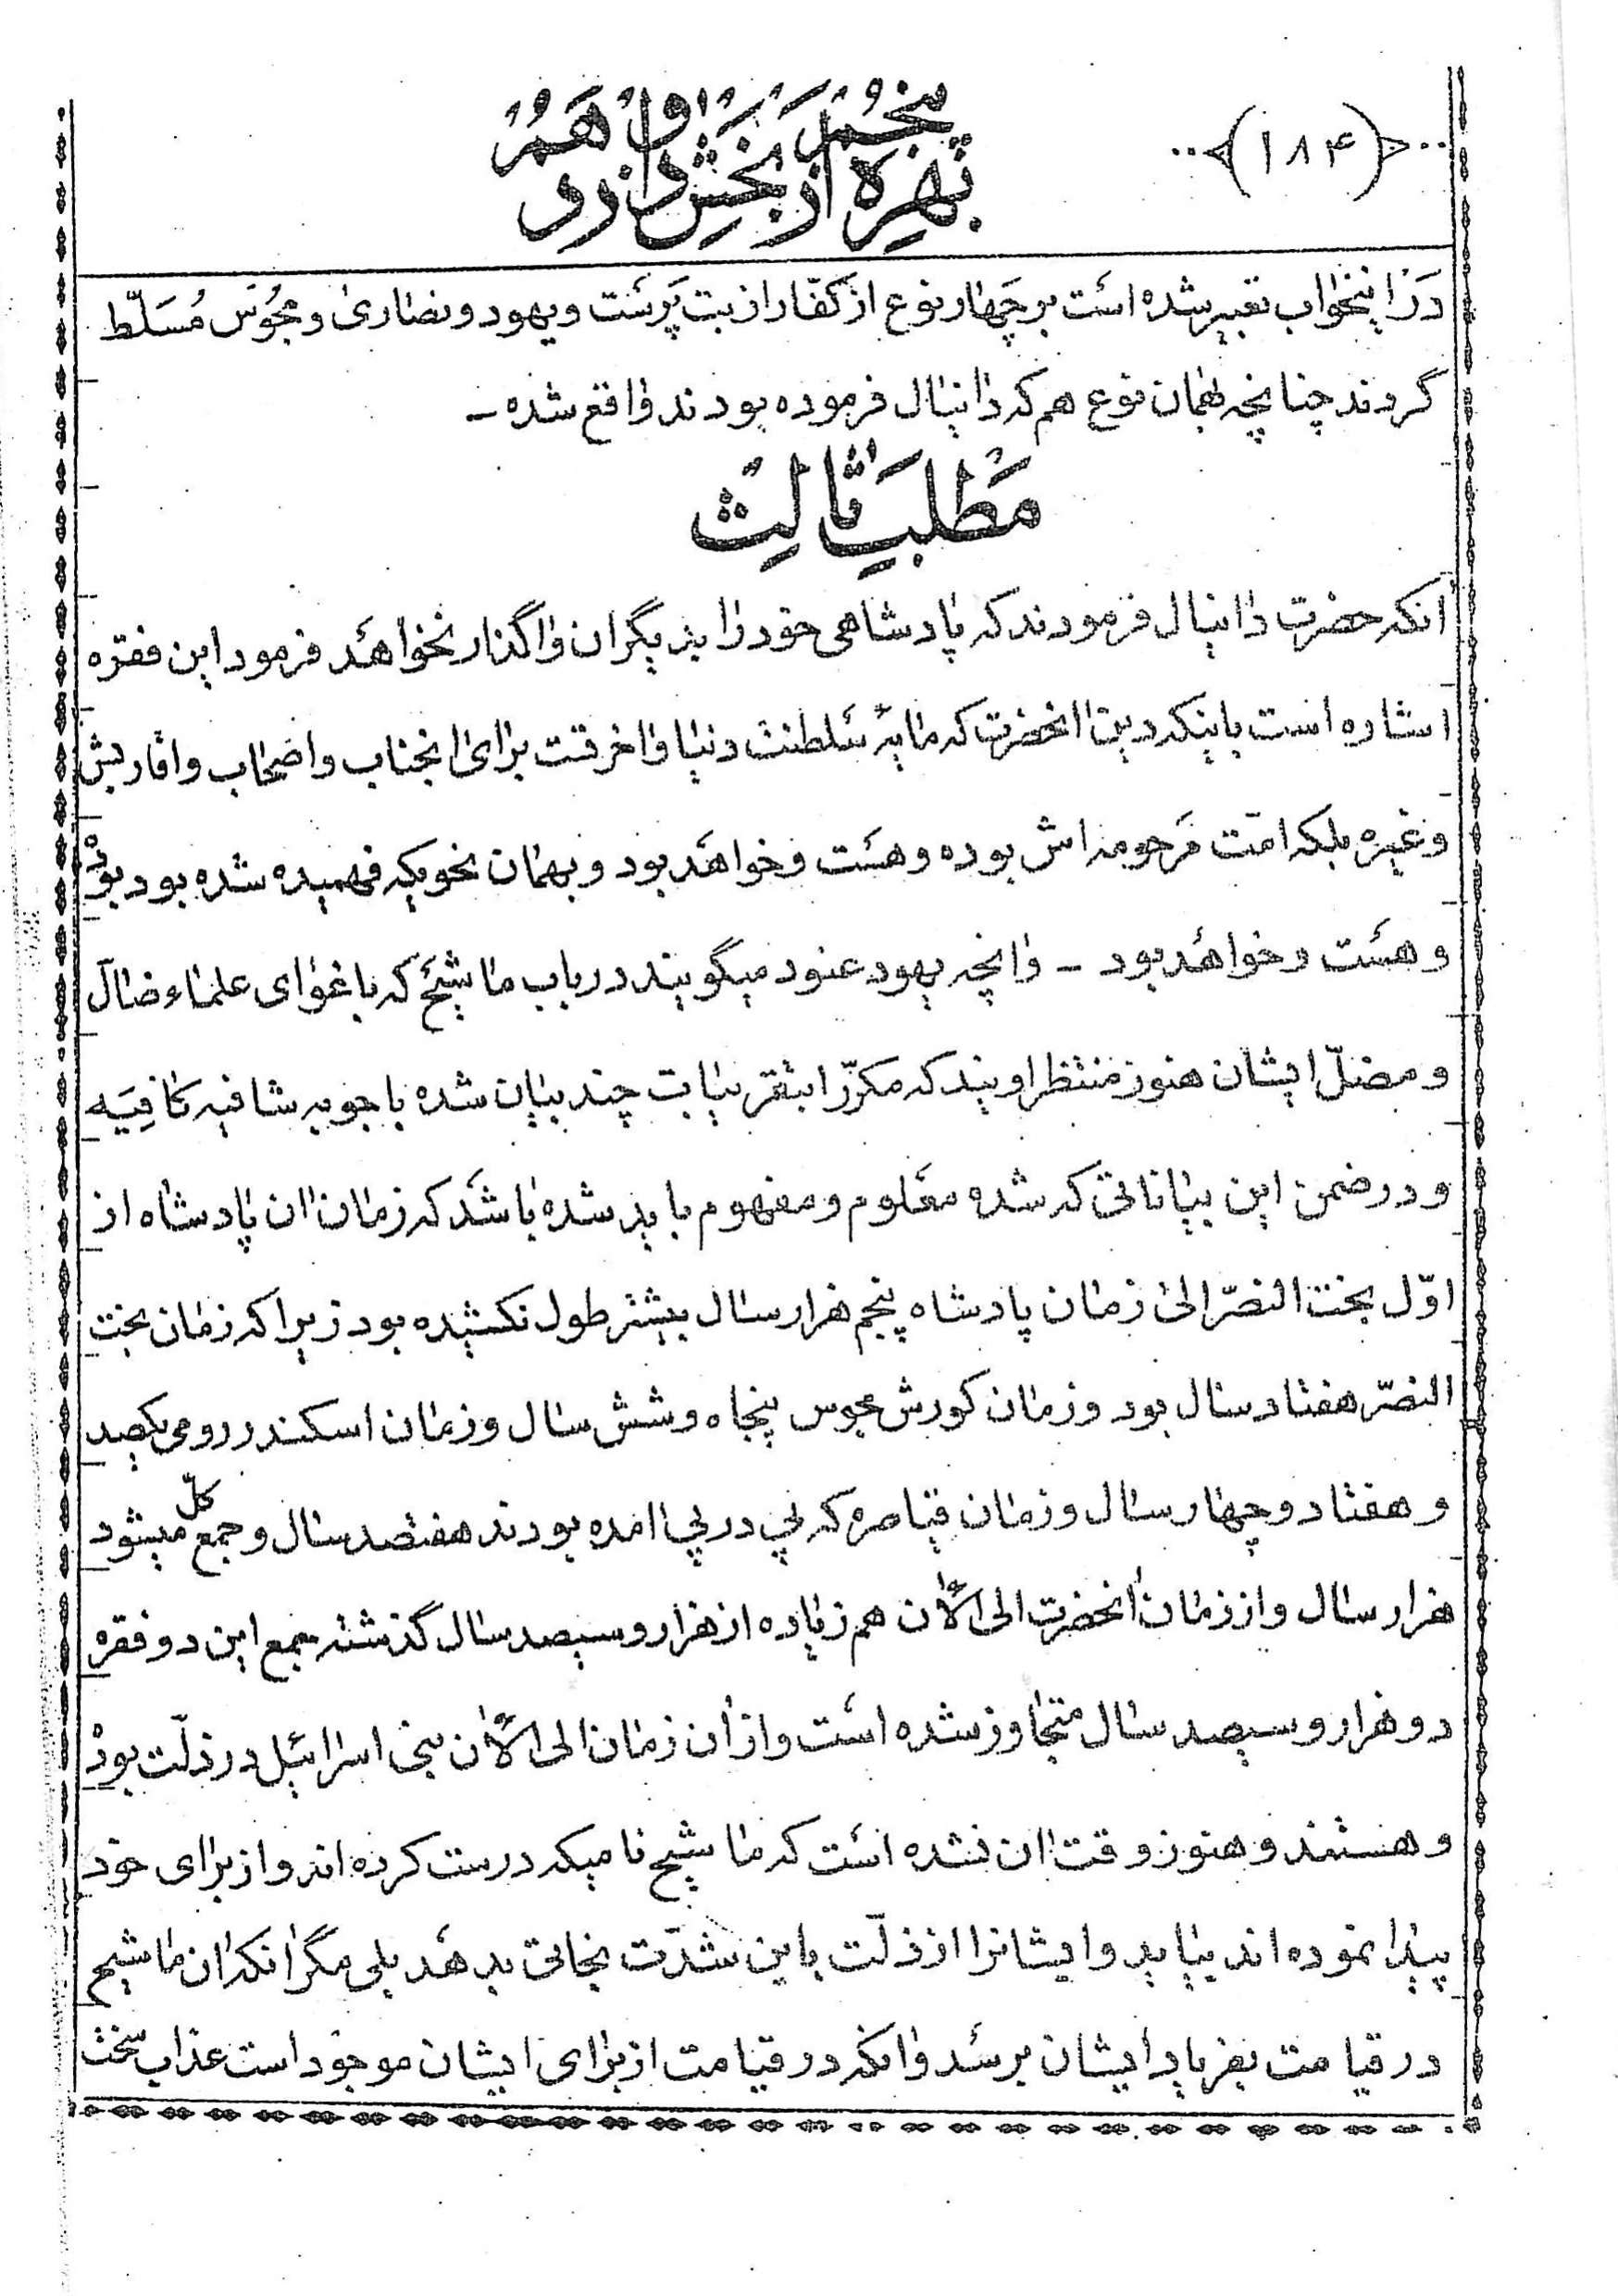 (۱۸۴)
پنجم
فقره از بخش دوازدهم
در اینخواب تعبیر شده است بر چهار نوع از کفّار از بت پرست و یهود و نصاری و مجوس مُسَلّط
گردند چنانچه بهمان نوع هم که دانیال فرموده بودند واقع شده ـ
مَطلب ثالِث
آنکه حضرت دانیال فرمودند که پادشاهی خود را بدیگران واگذار نخواهد فرمود این فقره
اشاره است باینکه دین انحضرت که مایهٔ سلطنت دنیا و اخرتست برای انجناب و اصحاب و اقاربش
و غیره بلکه امّت مرحومه اش بوده و هست و خواهد بود و بهمان نحویکه فهمیده شده بود بوده
و هست و خواهد بود ـ و انچه یهود عنود میگویند در باب ماشیح که باغوای علماء ضالّ
و مضلّ ایشان هنوز منتظر اویند که مکرّرا بتقریبات چند بیان شده باجوبه شافیه کافِیَه
و در ضمن این بیاناتی که شده معلوم و مفهوم باید شده باشد که زمان ان پادشاه از
اوّل بخت النصّر الی زمان پادشاه پنجم هزار سال بیشتر طول نکشیده بود زیرا که زمان بخت
النصّر هفتاد سال بود و زمان کورش مجوس پنجاه و شش سال و زمان اسکندر رومی یکصد
و هفتاد و چهار سال و زمان قیاصره که پی در پی امده بودند هفتصد سال و جمع کلّ میشود
هزار سال و از زمان انحضرت الی الآن هم زیاده از هزار و سیصد سال گذشته جمع این دو فقره
دو هزار و سیصد سال متجاوز شده است و از ان زمان الی الآن بنی اسرائیل در ذلّت بوده
و هستند و هنوز وقت ان نشده است که ماشیح نامیکه درست کرده اند و از برای خود
پیدا نموده اند بیاید و ایشانرا از ذلّت باین شدّت نجاتی بدهد بلی مگر انکه ان ماشیح
در قیامت بفریاد ایشان برسد و انکه در قیامت از برای ایشان موجود است عذاب سخت